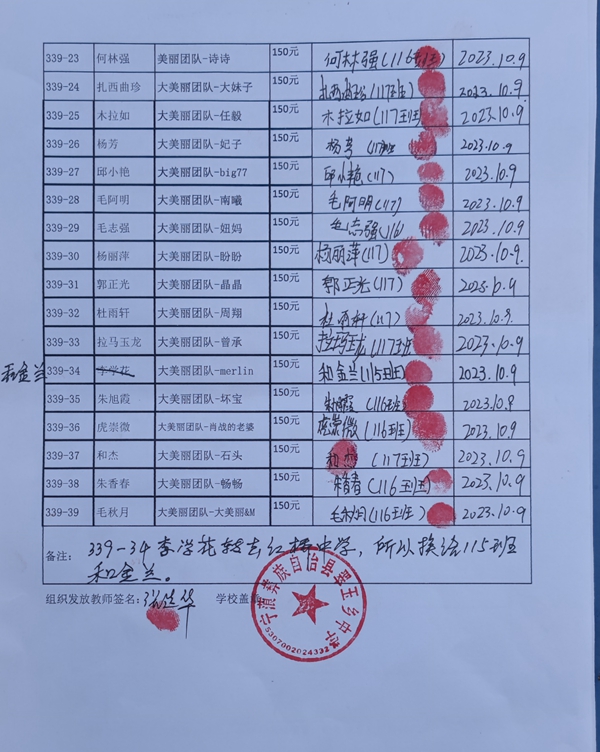 339-23 何林强 美丽团队-诗诗 150元 何林强(116班) 2023.10.9
339-24 扎西曲珍 大美丽团队-大妹子 150元 扎西曲珍(117班) 2023.10.9
339-25 木拉如 大美丽团队-任毅 150元 木拉如(117班) 2023.10.9
339-26 杨芳 大美丽团队-妃子 150元 杨芳(117班 2023.10.9
339-27 邱小艳 大美丽团队-big77 150元 邱小艳(117) 2023.10.9
339-28 毛阿明 大美丽团队-南曦 150元 毛阿明(117) 2023.10.9
339-29 毛志强 大美丽团队-妞妈 150元 毛志强(116) 2023.10.9
339-30 杨丽萍 大美丽团队-盼盼 150元 杨丽萍(117) 2023.10.9.
339-31 郭正光 大美丽团队-晶晶 150元 郭正光(117) 2023.10.9
339-32 杜雨轩 大美丽团队-周翔 150元 杜雨轩(117) 2023.10.9.
339-33 拉马玉龙 大美丽团队-曾承 150元 拉马玉龙(117班 2023.10.9
和金兰 339-34 李学花 大美丽团队-merlin 150元 和金兰(115班) 2023.10.9
339-35 朱旭霞 大美丽团队-坏宝 150元 朱旭霞(116班) 2023.10.9
339-36 虎崇微 大美丽团队-肖战的老婆 150元 虎崇微(116班) 2023.10.9
339-37 和杰 大美丽团队-石头 150元 和杰(117班) 2023.10.9
339-38 朱香春 大美丽团队-畅畅 150元 朱香春(116班) 2023.10.9
339-39 毛秋月 大美丽团队-大美丽&M 150元 毛秋月(116班) 2023.10.9
备注: 339-34李学花转去红桥中学,所以换给115班
和金兰。
组织发放教师签名: 学校盖
宁蒗彝族自治县 玉乡中学
5307002024332